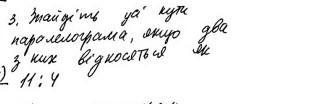 3. Знайдіть усі кути
паралелограма, якщо два
з них відносяться як
) 11:4